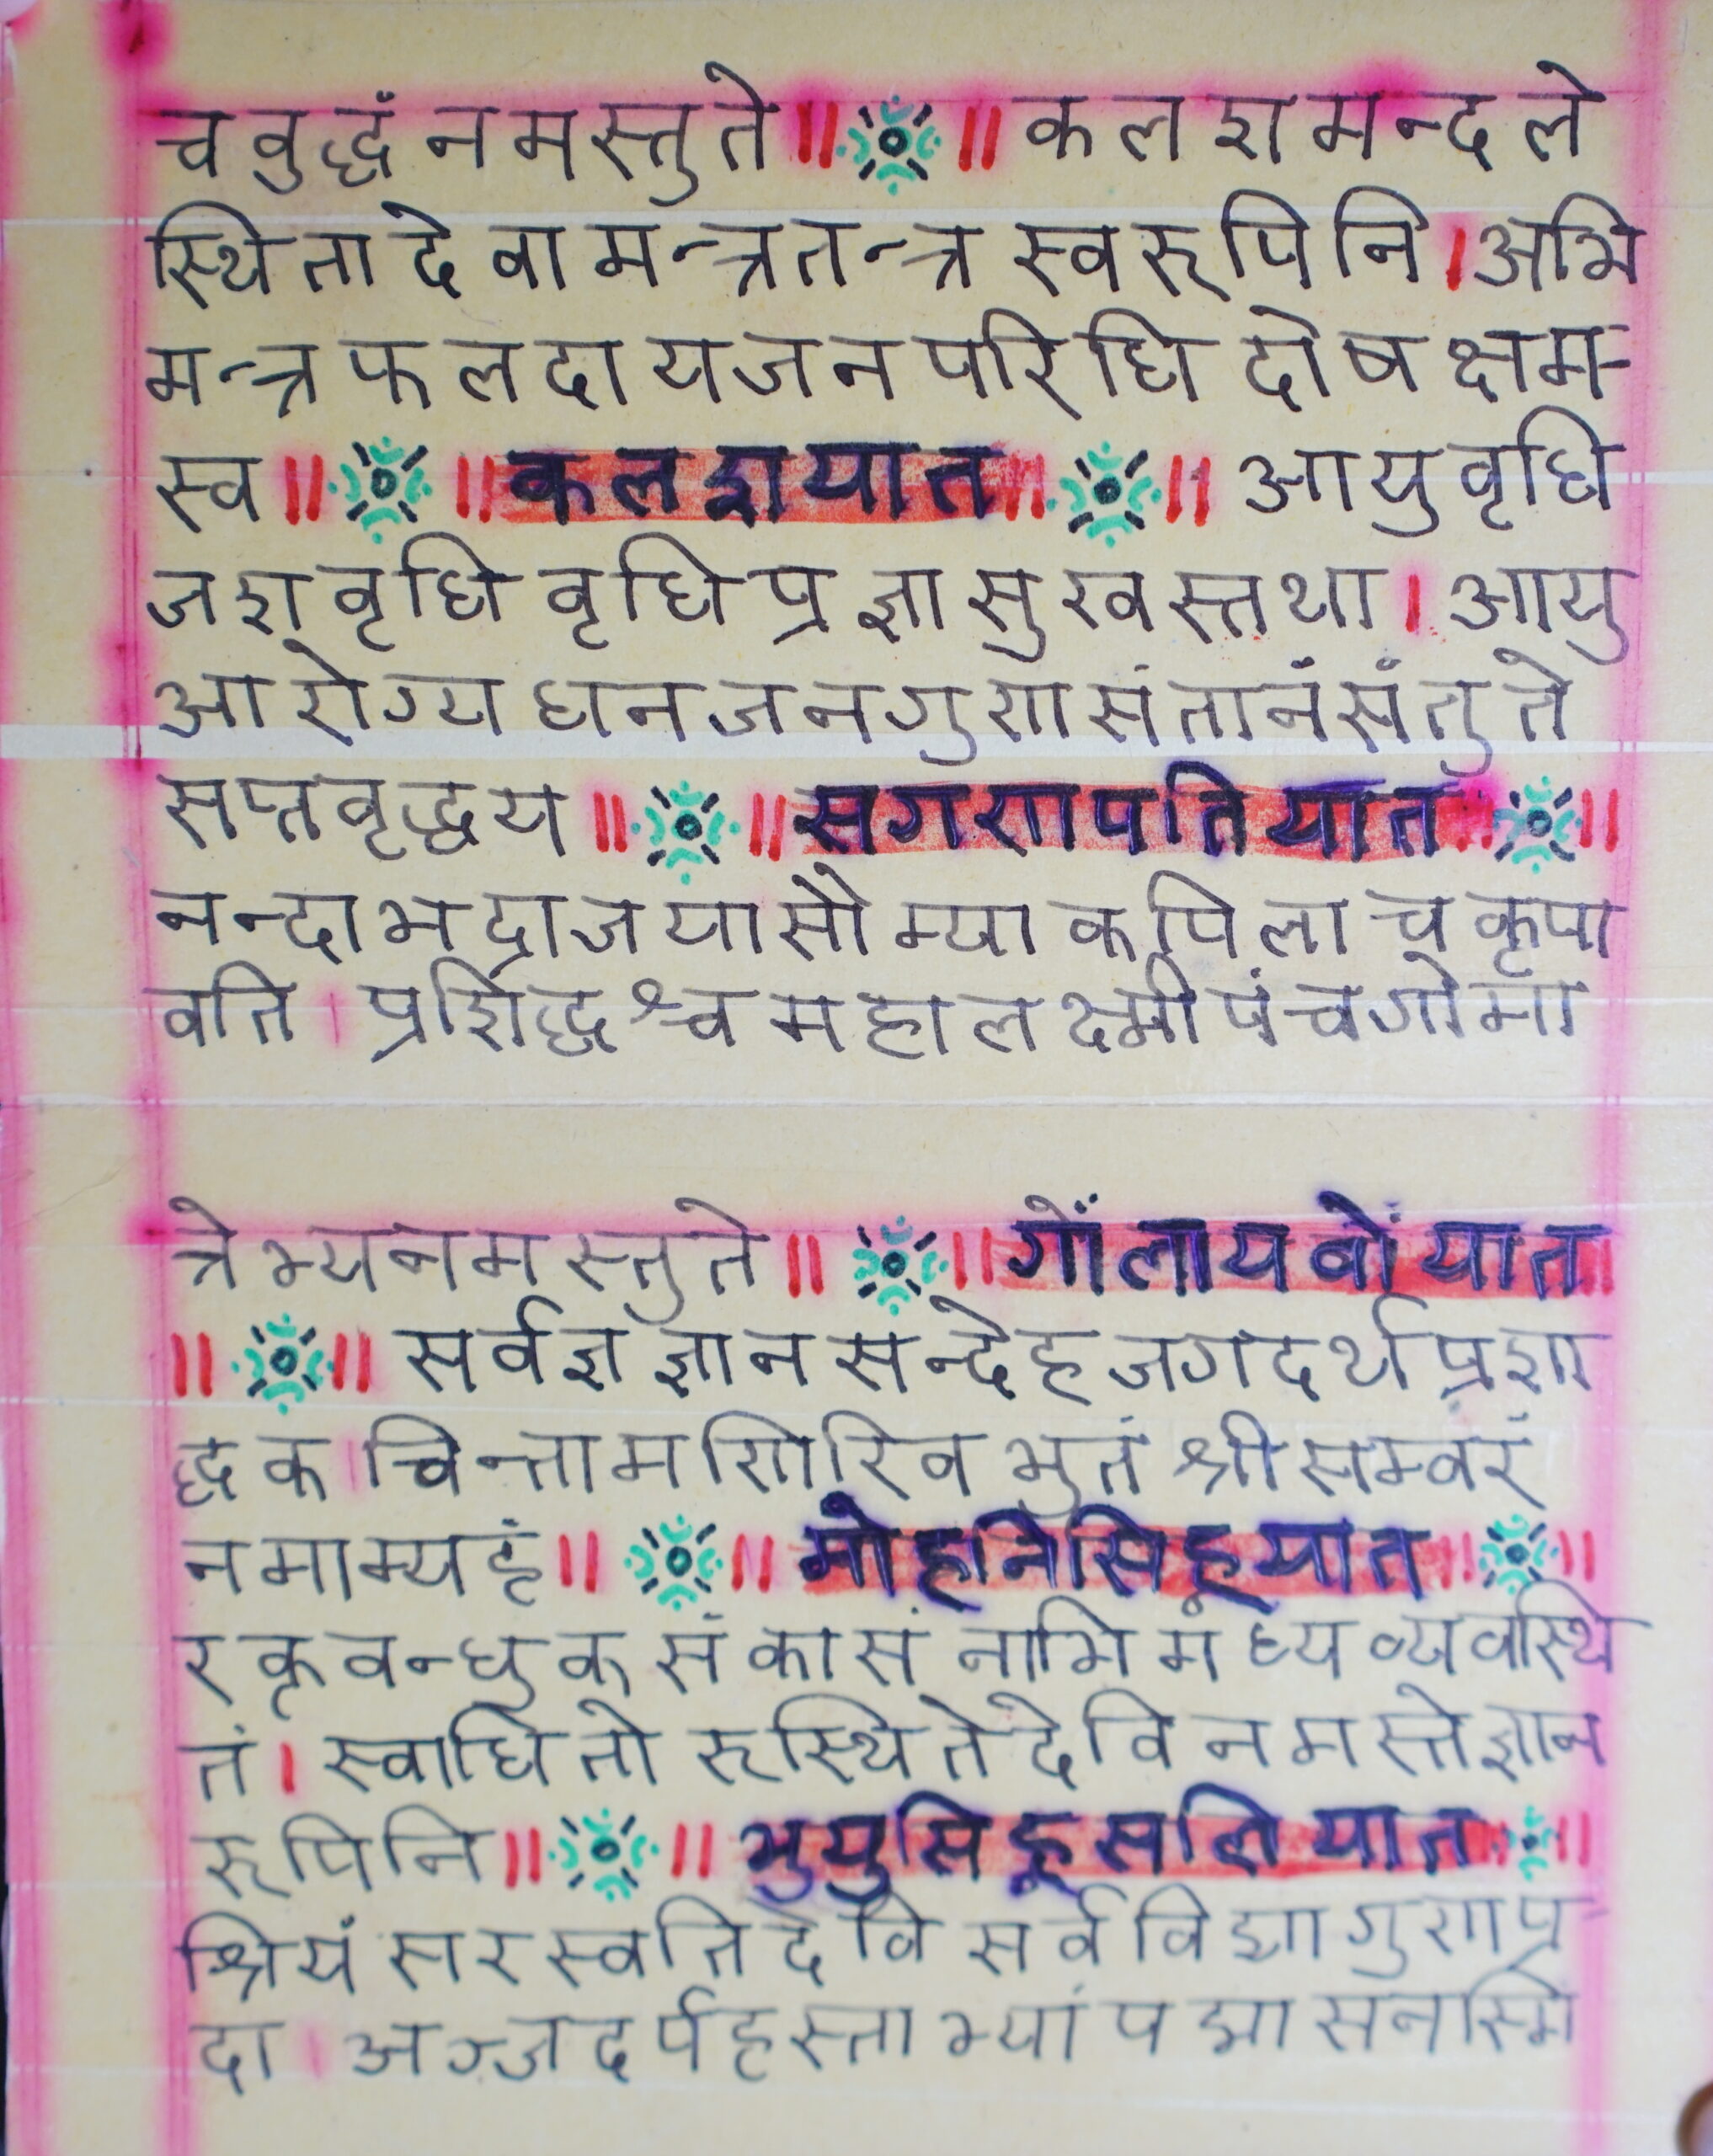 च वुद्धं नमस्तुते ॥ ॥ कलशमन्दले
स्थितादेवामन्त्रतन्त्र स्वरूपिनि । अभि
मन्त्रफलदायजनपरिधि दोषक्षम-
स्व ॥ ॥ कलशयात ॥ ॥ आयुवृधि
जशवृधि वृधिप्रज्ञासुखस्तथा । आयु
आरोग्यधनजनगुणसंतानंसंतुते
सप्तवृद्धय ॥ ॥ सगणपतियात ॥ ॥
नन्दाभद्राजयासौम्या कपिला च कृपा
वति । प्रशिद्धश्व महालक्ष्मीपंचगोमा
त्रेभ्यनमस्तुते ॥ ॥ गोंलायवोंयात ॥
॥ ॥ सर्वज्ञज्ञानसन्देहजगदर्थप्रशा
द्धक । चिन्तामणिरिव भुतं श्रीसम्वरं
नमाम्यहं ॥ ॥ मोहानिसिह्रयात ॥ ॥
रक्तवन्धुकसंकासं नाभिमंध्यव्यवस्थि
तं । स्वाधितोरूस्थितेदेवि नमस्तेज्ञान
रूपिनि ॥ ॥ भुयुसिह्रसलियात ॥
श्रियं सरस्वतिदेवि सर्वविद्यागुणप्र
दा । अब्जदर्पहस्ताभ्यां पद्मासनस्मि